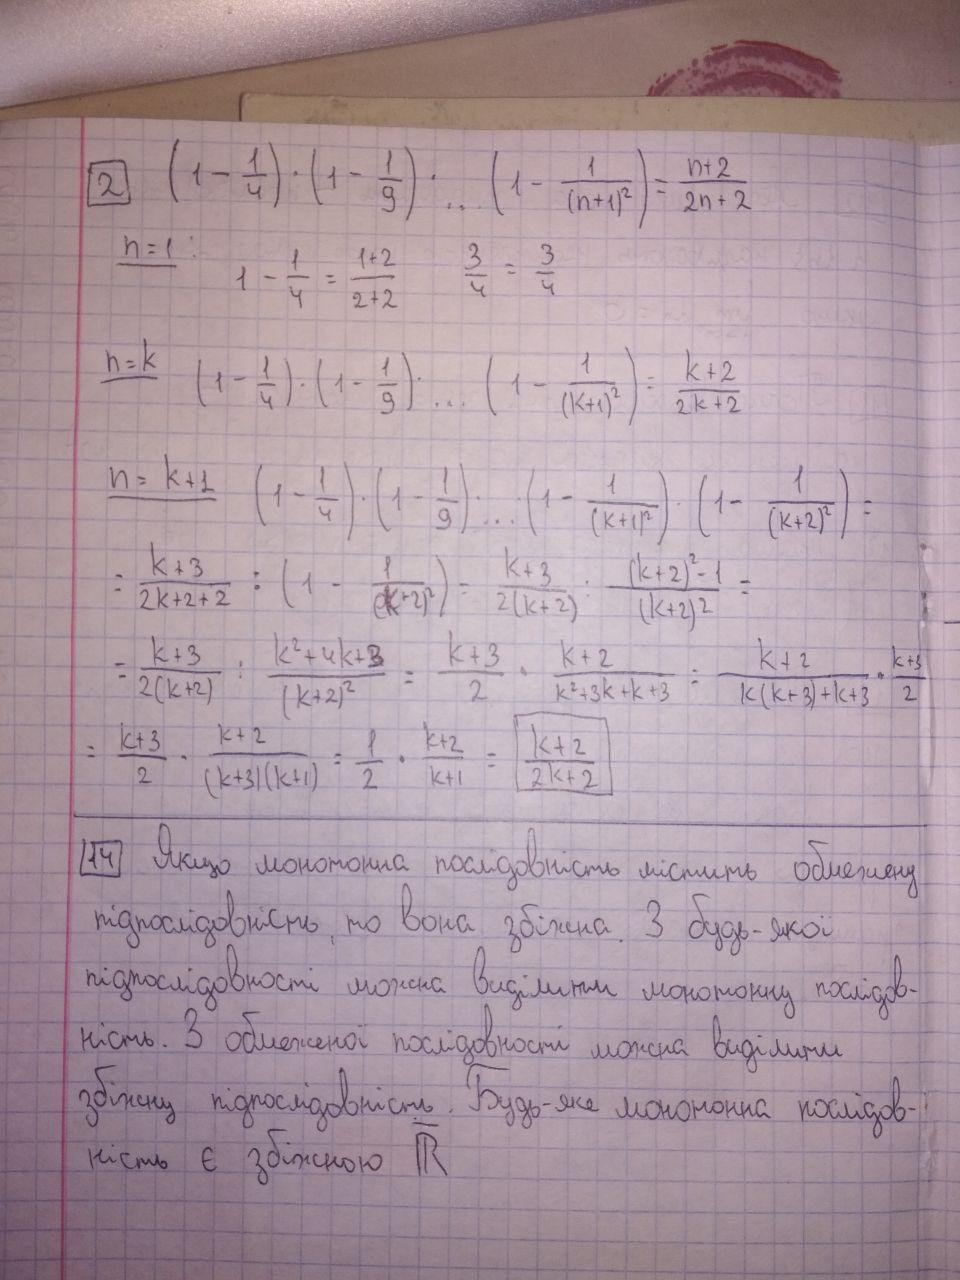 2 (1 - 1/4) · (1 - 1/9) · ... (1 - 1/(n+1)²) = n+2/2n+2
n=1: 1 - 1/4 = 1+2/2+2 3/4 = 3/4
n=k (1 - 1/4) · (1 - 1/9) · ... (1 - 1/(k+1)²) = k+2/2k+2
n=k+1 (1 - 1/4) · (1 - 1/9) · ... (1 - 1/(k+1)²) · (1 - 1/(k+2)²) =
= k+3/2k+2+2 : (1 - 1/(k+2)²) = k+3/2(k+2) : (k+2)²-1/(k+2)² =
= k+3/2(k+2) : k²+4k+3/(k+2)² = k+3/2 · k+2/k²+3k+k+3 = k+2/k(k+3)+k+3 · k+3/2
= k+3/2 · k+2/(k+3)(k+1) = 1/2 · k+2/k+1 = k+2/2k+2
14 Якщо монотонна послідовність містить обмежену
підпослідовність, то вона збіжна. З будь-якої
підпослідовності можна виділити монотонну послідов-
ність. З обмеженої послідовності можна виділити
збіжну підпослідовність. Будь-яке монотонна послідов-
ність є збіжною ℝ̅